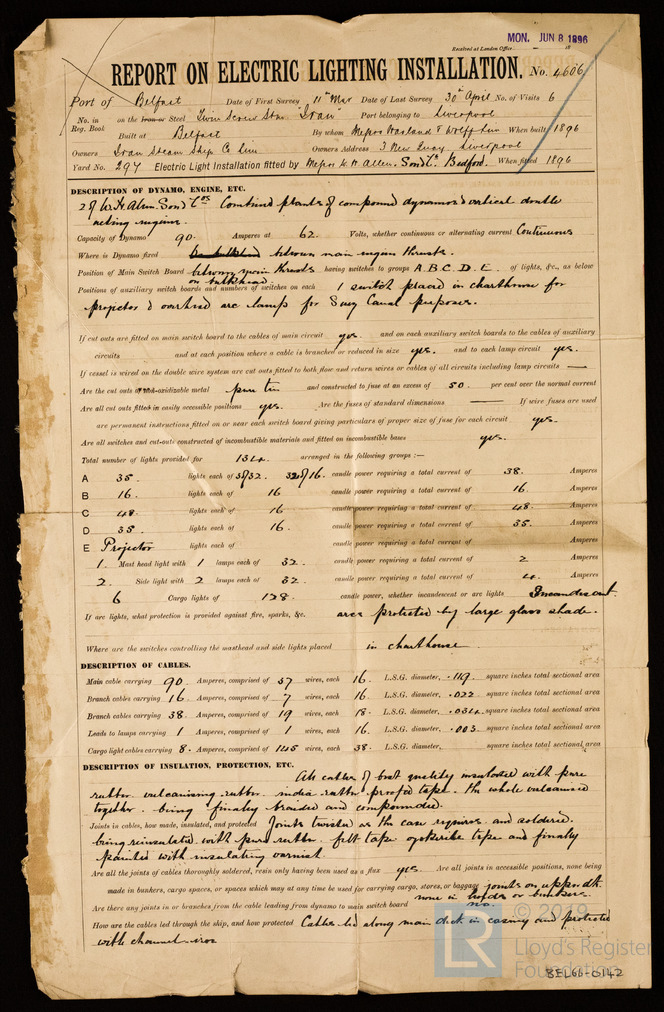 MON. JUN 8 1896
Received at London Office 18
REPORT ON ELECTRIC LIGHTING INSTALLATION. No. 4606
Port of Belfast Date of First Survey 11th Mar Date of Last Survey 30th April No. of Visits 6
No. in Reg. Book on the Iron or Steel Twin Screw Str "Iran" Port belonging to Liverpool
Built at Belfast By whom Messrs Harland & Wolff Lim When built 1896
Owners Iran Steam Ship Co Lim Owners Address 3 New Quay Liverpool
Yard No. 297 Electric Light Installation fitted by Messrs W. H. Allen, Son & Co. Bedford. When fitted 1896
DESCRIPTION OF DYNAMO, ENGINE, ETC.
2 of W. H. Allen. Son & Cos Combined plants of compound dynamos & vertical double
acting engines.
Capacity of Dynamo 90. Amperes at 62. Volts, whether continuous or alternating current Continuous
Where is Dynamo fixed between main engine thrusts.
Position of Main Switch Board between main thrusts on bulkhead having switches to groups A. B. C. D. E. of lights, &c., as below
Positions of auxiliary switch boards and numbers of switches on each 1 switch placed in charthouse for
projector & overhead arc lamps for Suez Canal purposes.
If cut outs are fitted on main switch board to the cables of main circuit yes. and on each auxiliary switch boards to the cables of auxiliary
circuits and at each position where a cable is branched or reduced in size yes. and to each lamp circuit yes.
If vessel is wired on the double wire system are cut outs fitted to both flow and return wires or cables of all circuits including lamp circuits —
Are the cut outs of non-oxidizable metal pure tin and constructed to fuse at an excess of 50. per cent over the normal current
Are all cut outs fitted in easily accessible positions yes. Are the fuses of standard dimensions — If wire fuses are used
are permanent instructions fitted on or near each switch board giving particulars of proper size of fuse for each circuit yes.
Are all switches and cut-outs constructed of incombustible materials and fitted on incombustible bases yes.
Total number of lights provided for 134. arranged in the following groups :—
A 35. lights each of 3/32. 32 of 16. candle power requiring a total current of 38. Amperes
B 16. lights each of 16 candle power requiring a total current of 16. Amperes
C 48. lights each of 16. candle power requiring a total current of 48. Amperes
D 35. lights each of 16. candle power requiring a total current of 35. Amperes
E Projector lights each of candle power requiring a total current of Amperes
1. Mast head light with 1 lamps each of 32. candle power requiring a total current of 2 Amperes
2. Side light with 2 lamps each of 32. candle power requiring a total current of 4. Amperes
6 Cargo lights of 128. candle power, whether incandescent or arc lights Incandescent.
If arc lights, what protection is provided against fire, sparks, &c. arcs protected by large glass shade.
Where are the switches controlling the masthead and side lights placed in charthouse.
DESCRIPTION OF CABLES.
Main cable carrying 90. Amperes, comprised of 37 wires, each 16. L.S.G. diameter, .119. square inches total sectional area
Branch cables carrying 16 Amperes, comprised of 7 wires, each 16. L.S.G. diameter, .022 square inches total sectional area
Branch cables carrying 38. Amperes, comprised of 19 wires, each 18. L.S.G. diameter, .034. square inches total sectional area
Leads to lamps carrying 1 Amperes, comprised of 1 wires, each 16. L.S.G. diameter, .003. square inches total sectional area
Cargo light cables carrying 8. Amperes, comprised of 145 wires, each 38. L.S.G. diameter, square inches total sectional area
DESCRIPTION OF INSULATION, PROTECTION, ETC.
All cables of best quality insulated with pure
rubber vulcanising rubber india rubber proofed tape. the whole vulcanised
together. being finally braided and compounded.
Joints in cables, how made, insulated, and protected Joints twisted as the case requires and soldered.
being reinsulated with pure rubber. felt tape tape and finally
painted with insulating varnish.
Are all the joints of cables thoroughly soldered, resin only having been used as a flux yes. Are all joints in accessible positions, none being
made in bunkers, cargo spaces, or spaces which may at any time be used for carrying cargo, stores, or baggage joints on upper dk.
none in holds or bunkers.
Are there any joints in or branches from the cable leading from dynamo to main switch board no.
How are the cables led through the ship, and how protected Cables led along main deck in casing and protected
with channel iron
© 2019
LR Lloyd's Register
Foundation
BEL66-0142